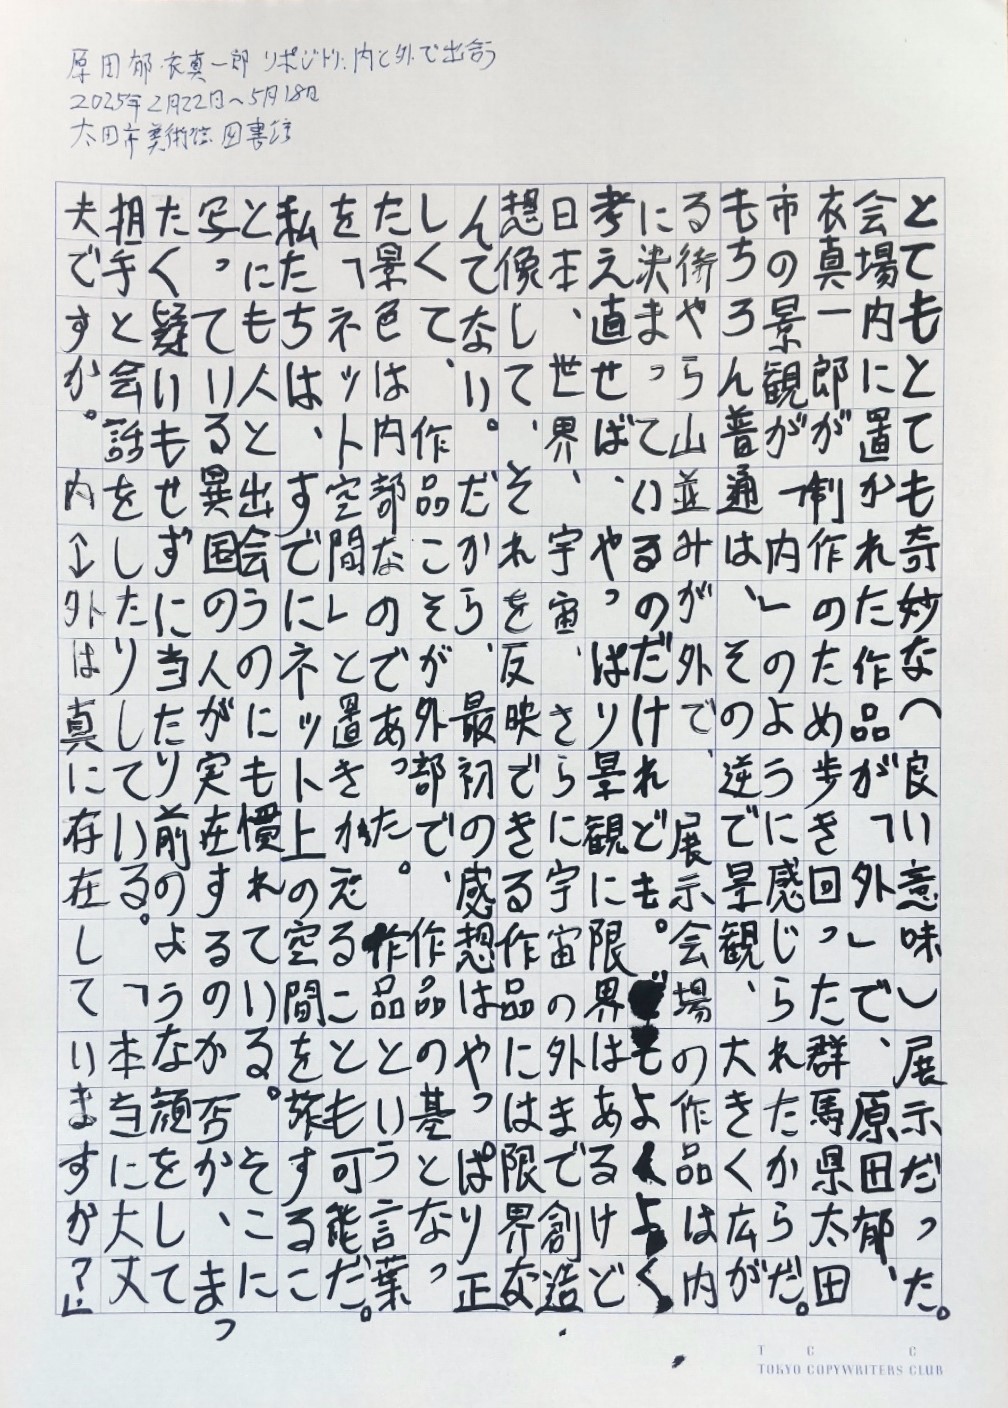 原田郁・衣真一郎 リポジトリ：内と外で出合う
2025年2月22日〜5月18日
太田市美術館図書館
とてもとても奇妙な（良い意味）展示だった。
会場内に置かれた作品が「外」で、原田郁、
衣真一郎が制作のため歩き回った群馬県太田
市の景観が「内」のように感じられたからだ。
もちろん普通は、その逆で景観、大きく広が
る街やら山並みが外で、展示会場の作品は内
に決まっているのだけれども。でもよくよく
考え直せば、やっぱり景観に限界はあるけど
日本、世界、宇宙、さらに宇宙の外まで創造・
想像して、それを反映できる作品には限界な
んてない。だから、最初の感想はやっぱり正
しくて、作品こそが外部で、作品の基となっ
た景色は内部なのであった。作品という言葉
を「ネット空間」と置きかえることも可能だ。
私たちは、すでにネット上の空間を旅するこ
とにも人と出会うのにも慣れている。そこに
写っている異国の人が実在するのか否か、まっ
たく疑いもせずに当たり前のような顔をして
相手と会話をしたりしている。「本当に大丈
夫ですか。内↔外は真に存在していますか？」
TCC
TOKYO COPYWRITERS CLUB